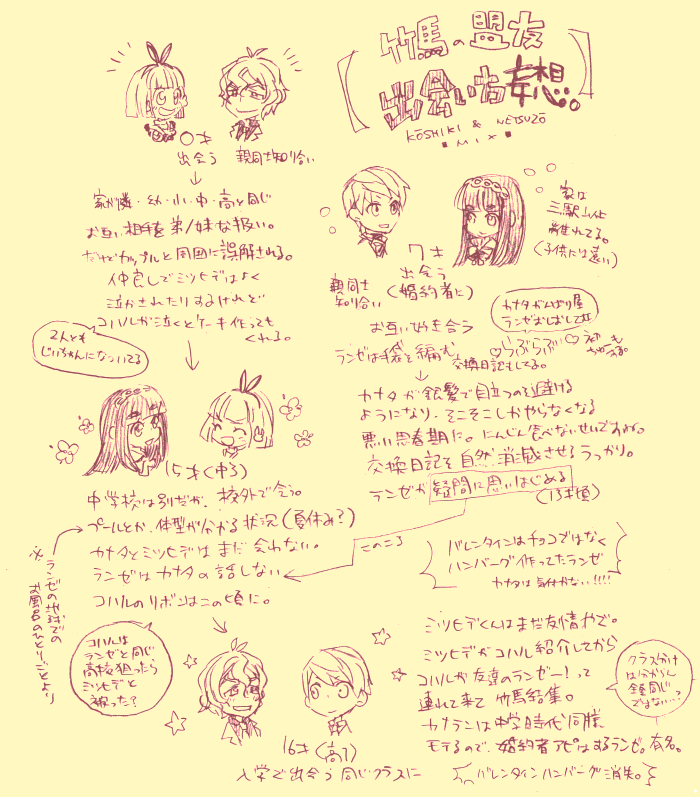 竹馬の盟友
出会いち妄想。
KŌSHIKI & NETSUZŌ
MIX
0才
出会う 親同士知り合い
↓
家が隣・幼・小・中・高と同じ
お互い相手を弟/妹な扱い。
だけどカップルと周囲に誤解される。
仲良しでミツヒデはよく
泣かされたりするけれど
コハルが泣くとケーキ作っても
くれる。
2人とも
じいちゃんになついてる
↓
7才
出会う
(婚約者に)
親同士
知り合い
家は
三駅以上
離れてる。
(子供には遠い)
お互い好き合う
カナタがんばり屋
ランゼおしおしで
♡らぶらぶ♡
ランゼは袋を編む
交換日記もしてる。
↓
カナタが銀髪で目立つのを避ける
ようになり、そこそこしかやらなくなる
悪い思春期に。にんじん食べないせいですよね。
交換日記を自然消滅させるうっかり。
ランゼが疑問に思いはじめる
(13才頃)
このころ
15才(中3)
中学校は別だが、校外で会う。
プールとか、体型が分かる状況(夏休み?)
カナタとミツヒデはまだ会わない。
ランゼはカナタの話しない
コハルのリボンはこの頃に。
※ランゼの地球での
お風呂のひとりごとより
バレンタインはチョコではなく
ハンバーグ作ってたランゼ
カナタは気付かない!!!!
コハルは
ランゼと同じ
高校狙ったら
ミツヒデと
被った?
16才(高1)
入学で出会う 同じクラスに
ミツヒデくんはまだ友情やで。
ミツヒデがコハル紹介してから
コハルが友達のランゼー!って
連れて来て 竹馬結集。
カナランは中学時代同様
モテるので、婚約者アピはするランゼ。有名。
クラス分け
は分からん
全員同じ
ではない…?
バレンタインハンバーグ消失。